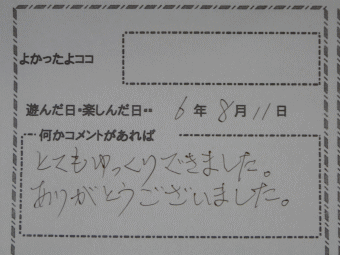 よかったよココ
遊んだ日・楽しんだ日・・ 6年8月11日
何かコメントがあれば
とてもゆっくりできました。
ありがとうございました。